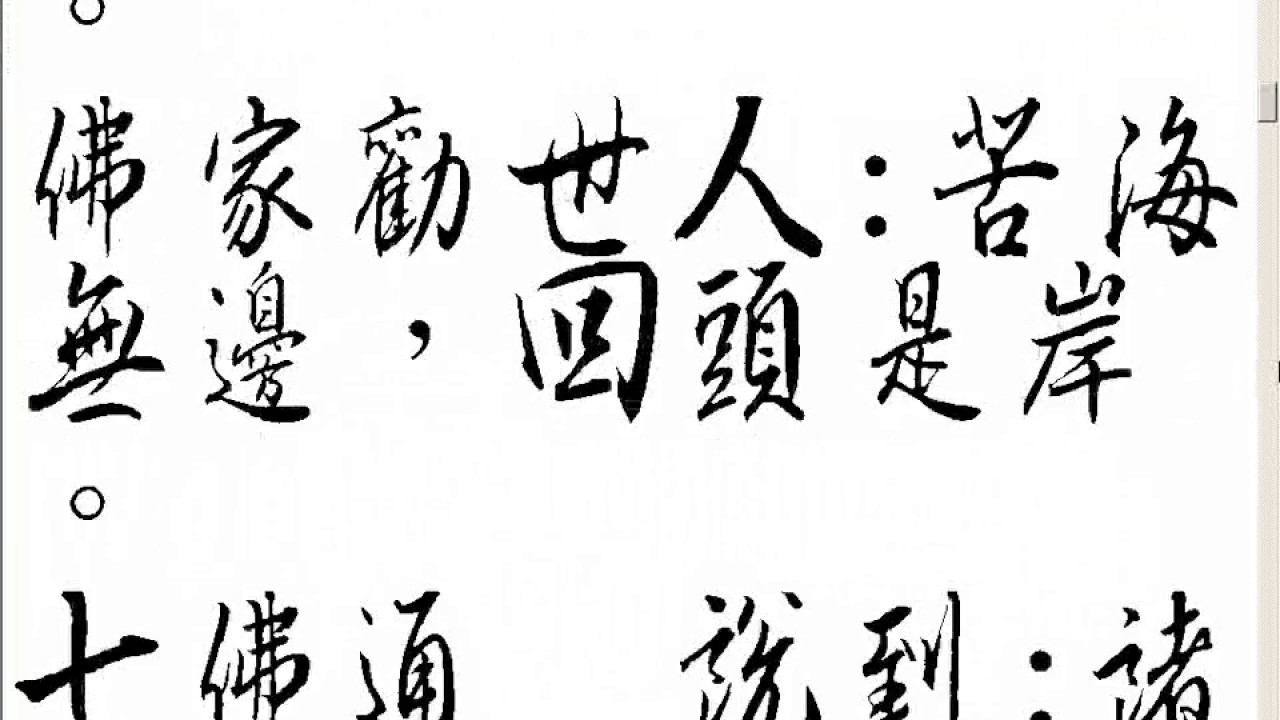 。
佛家勸世人：苦海
無邊，回頭是岸
。
十佛通　說到：諸